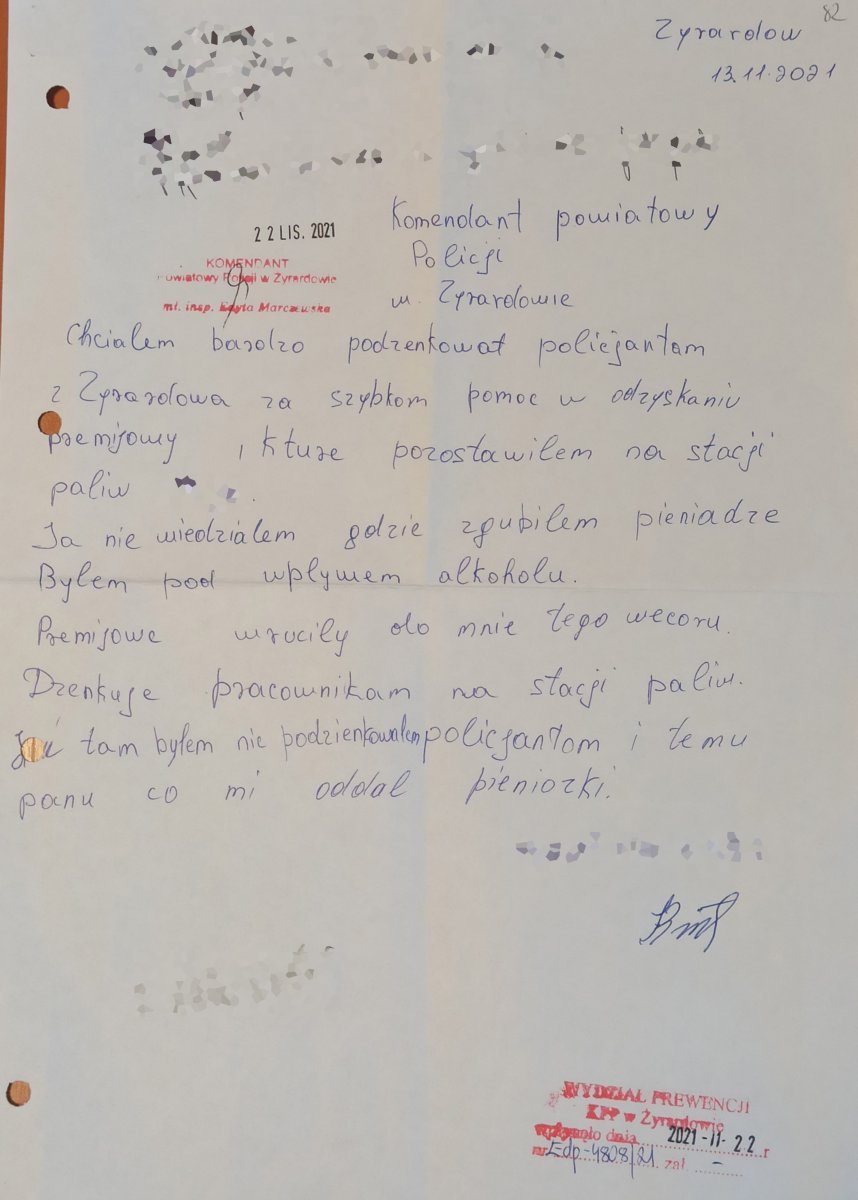 82
Zyrardow
13.11.2021
Komendant powiatowy
Policji
w. Zyrardowie
22 LIS. 2021
KOMENDANT
Powiatowy Policji w Żyrardowie
mł. insp. Edyta Marczewska
Chcialem bardzo podzenkowat policjantam
z Zyrardowa za szybkom pomoc w odzyskaniu
premijowy , kture pozostawilem na stacji
paliw
Ja nie wiedzialem gdzie zgubilem pieniadze
Bylem pod wplywem alkoholu.
Premijowe wrucily do mnie tego wecoru.
Dzenkuje pracownikam na stacji paliw.
tam byłem nie podzienkowalem policjantom i temu
panu co mi oddal pieniozki.
WYDZIAŁ PREWENCJI
KPP w Żyrardowie
wpłynęło dnia 2021-11-22 r
nr Edp-4808/21 zał. -